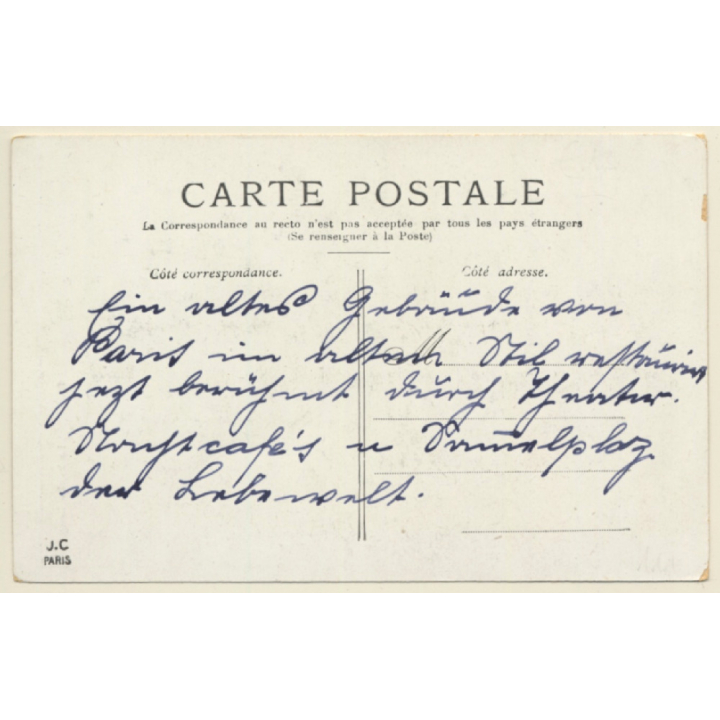 CARTE POSTALE
La Correspondance au recto n'est pas acceptée par tous les pays étrangers
(Se renseigner à la Poste)
Côté correspondance.
Côté adresse.
Ein altes Gebäude von
Paris im alten Stil restauriert
jezt berühmt durch Theater.
Nachtcafé's u Sammelplaz
der Lebewelt.
J.C
PARIS